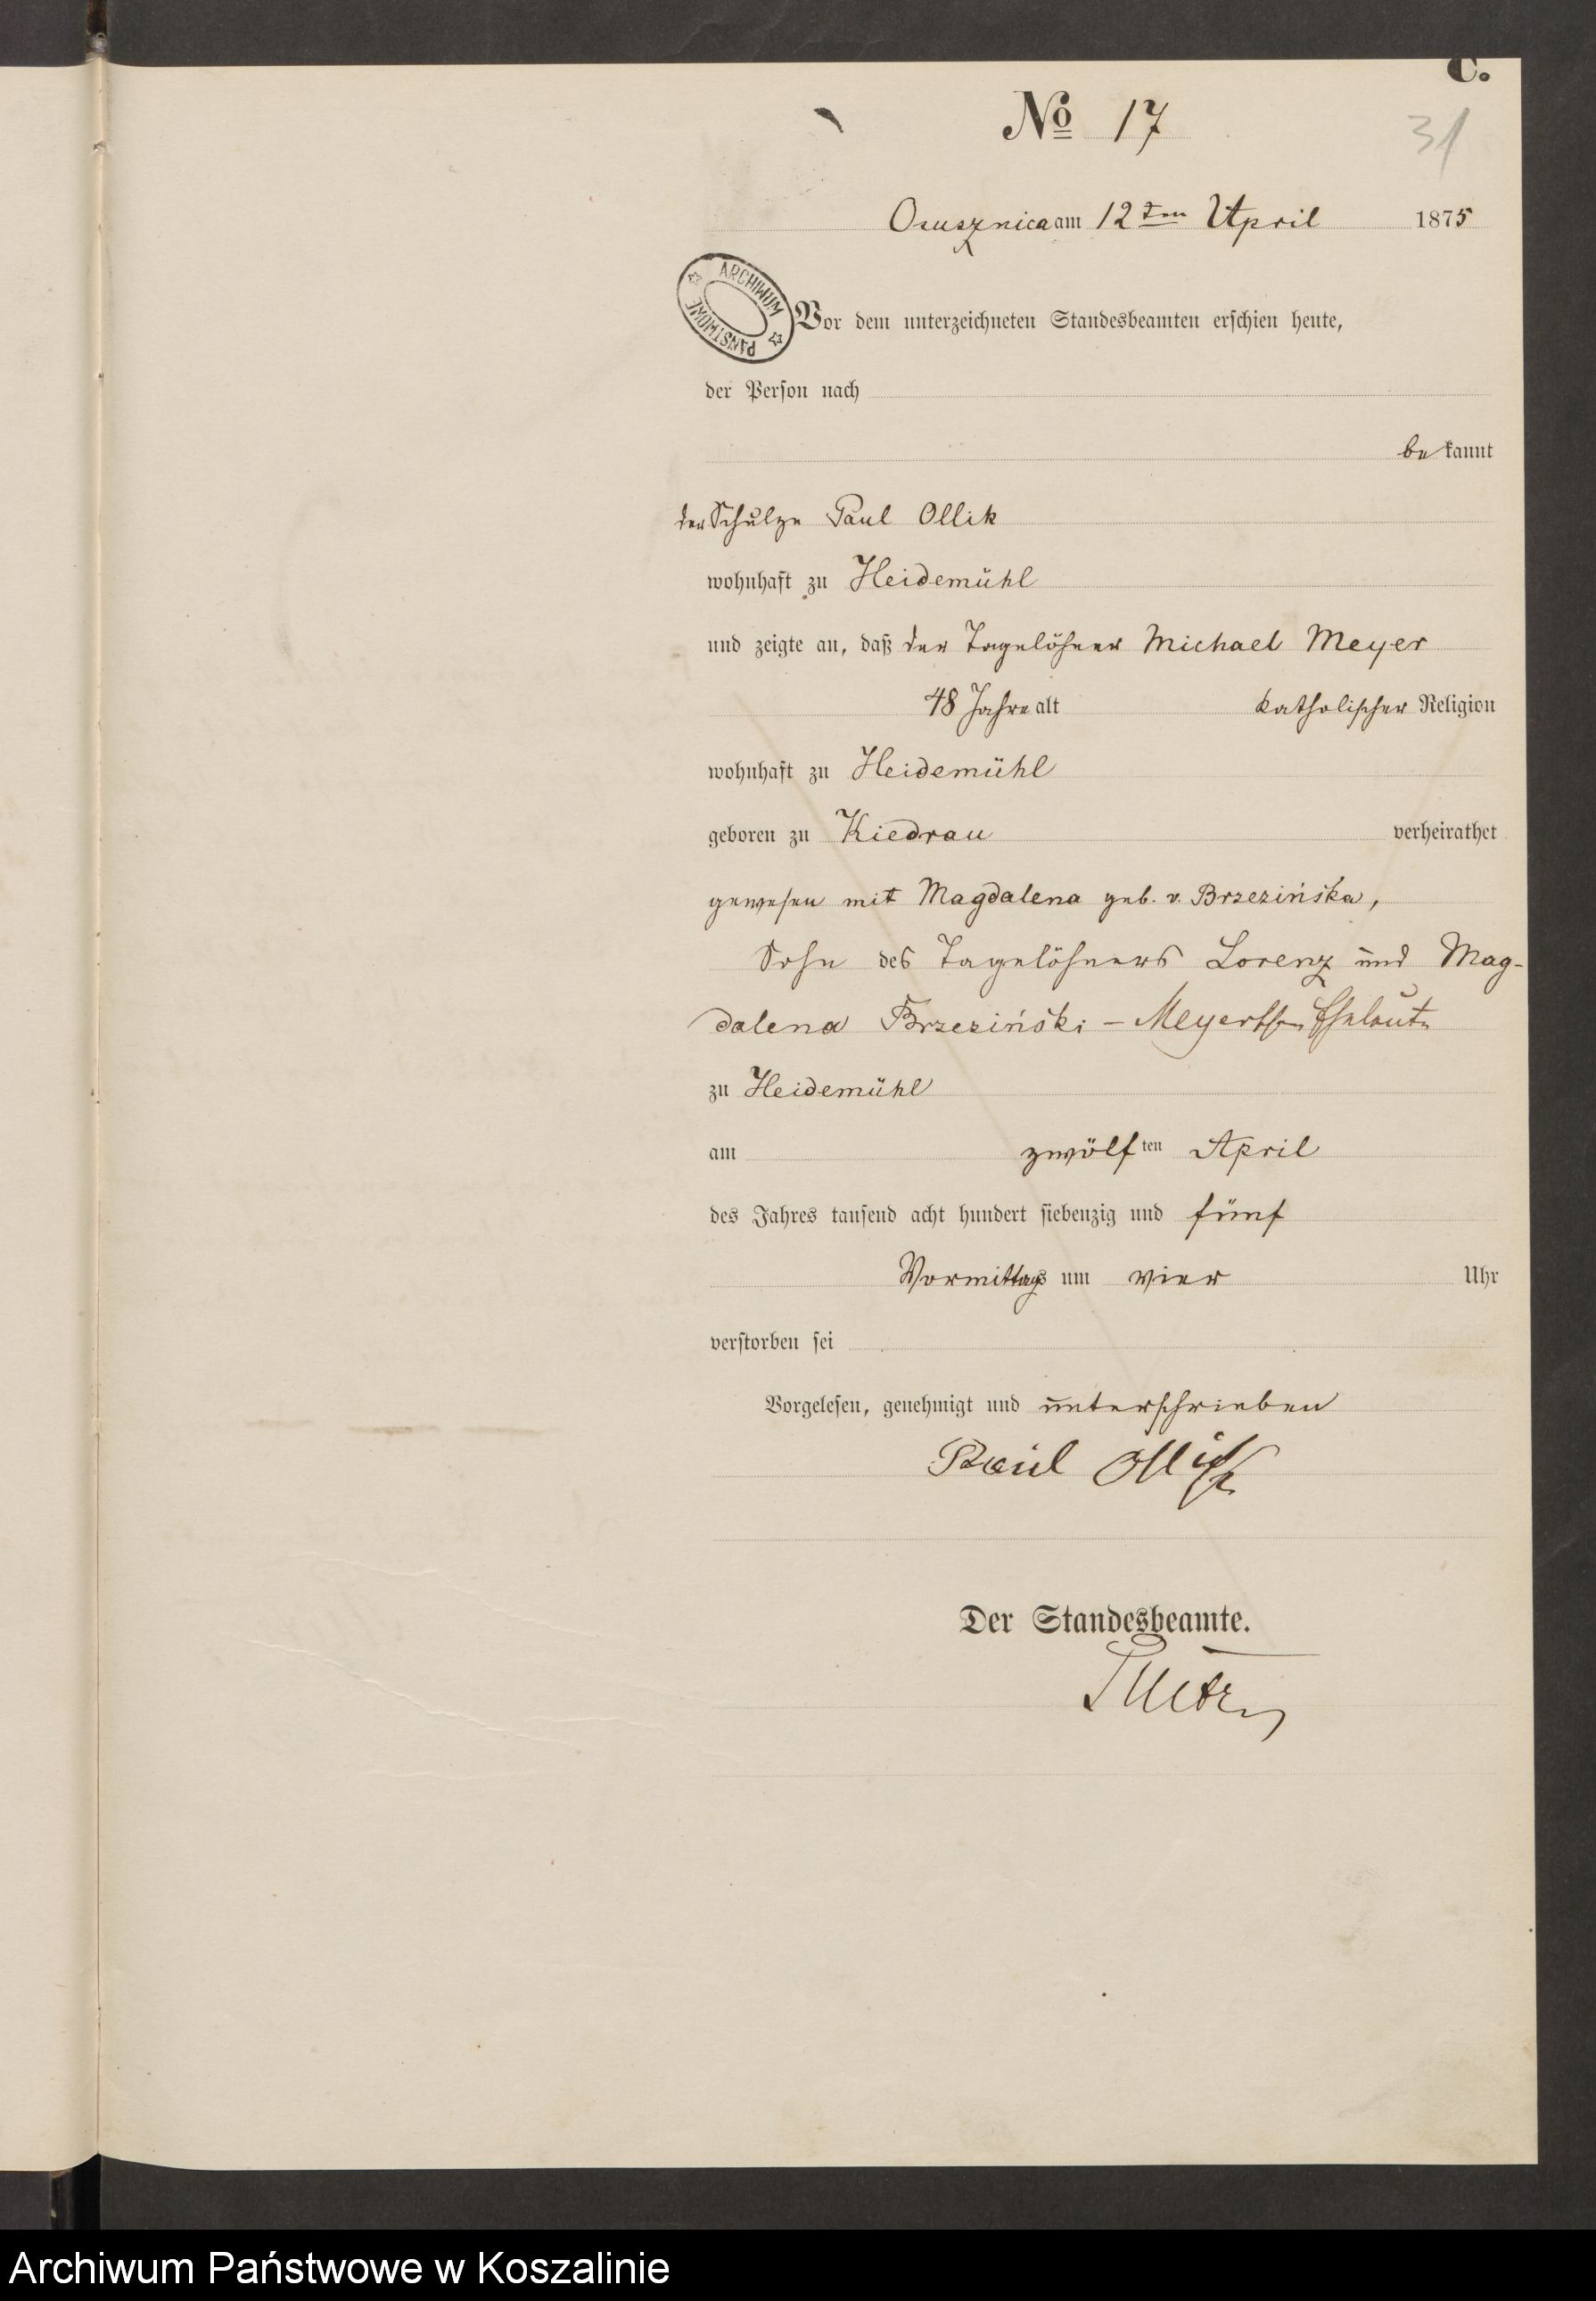 C.
No 17
31
Osusznica am 12ten April 1875
ARCHIWUM PAŃSTWOWE
Vor dem unterzeichneten Standesbeamten erschien heute,
der Person nach
be kannt
der Schulze Paul Ollik
wohnhaft zu Heidemühl
und zeigte an, daß der Tagelöhner Michael Meyer
48 Jahre alt katholischer Religion
wohnhaft zu Heidemühl
geboren zu Kiedrau verheirathet
gewesen mit Magdalena geb. v. Brzezińska,
Sohn des Tagelöhners Lorenz und Mag-
dalena Brzeziński - Meyerschen Eheleute
zu Heidemühl
am zwölf ten April
des Jahres tausend acht hundert siebenzig und fünf
Vormittags um vier Uhr
verstorben sei
Vorgelesen, genehmigt und unterschrieben
Paul Ollik
Der Standesbeamte.
Archiwum Państwowe w Koszalinie